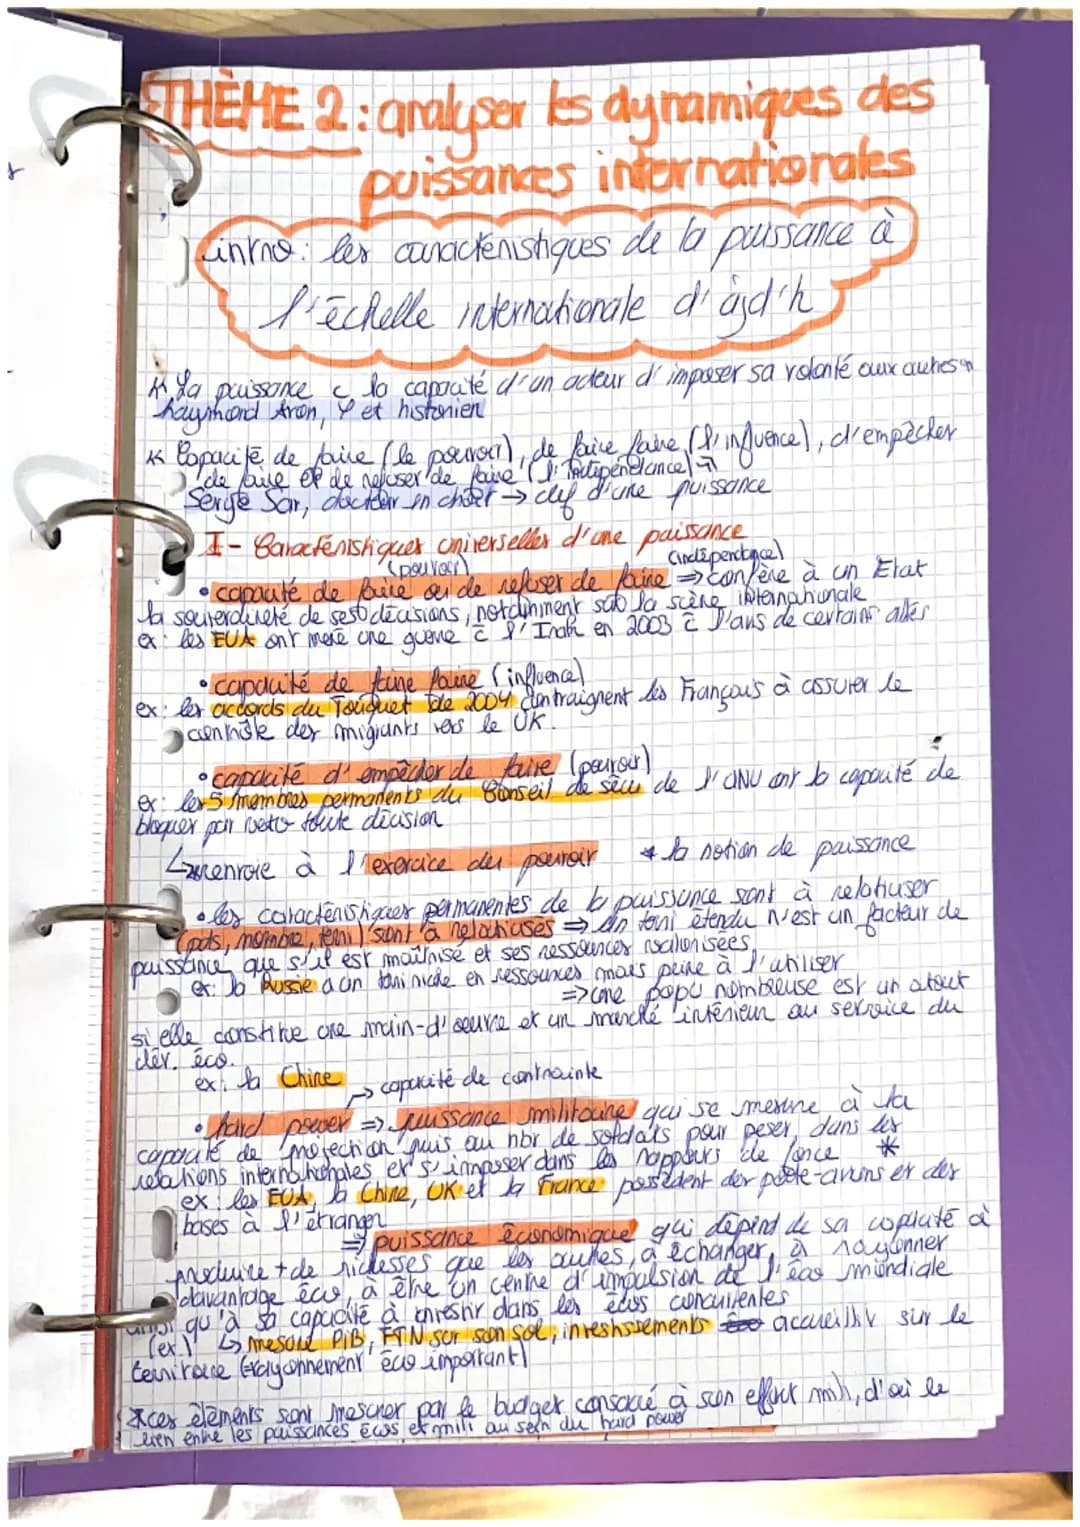 THÈME 2 : analyser les dynamiques des
puissances internationales
intro : les caractéristiques de la puissance à
l'échelle internationale d'ajd'h
La puissance c la capacité d'un acteur d'imposer sa volonté aux autres
Raymond Aron, φ et historien
Capacité de faire (le pouvoir), de faire faire (l'influence), d'empêcher
de faire et de refuser de faire (l'indépendance)
Serge Sur, docteur en → clef d'une puissance
I - Caractéristiques universelles d'une puissance
(pouvoir) (indépendance)
• capacité de faire ou de refuser de faire ⇒ confère à un Etat
la souveraineté de ses décisions, notamment sur la scène internationale
ex : les EUA ont mené une guerre c̄ l'Irak en 2003 c̄ l'avis de certains alliés
• capacité de faire faire (influence)
ex : les accords du Touquet de 2004 contraignent les Français à assurer le
contrôle des migrants vers le UK.
• capacité d'empêcher de faire (pouvoir)
ex : les 5 membres permanents du Conseil de sécu de l'ONU ont la capacité de
bloquer par veto toute décision
↳ renvoie à l'exercice du pouvoir * la notion de puissance
• les caractéristiques permanentes de la puissance sont à relativiser
(pois, nombre, terri) sont à relativisés ⇒ un terri étendu n'est un facteur de
puissance que s'il est maîtrisé et ses ressources valorisées
ex : la Russie a un terri riche en ressources mais peine à l'utiliser
⇒ une popu nombreuse est un atout
si elle constitue une main-d'œuvre et un marché intérieur au service du
dév. éco.
ex : la Chine
→ capacité de contrainte
• hard power ⇒ puissance militaire qui se mesure à la
capacité de projection puis au nbr de soldats pour peser dans les
relations internationales et s'imposer dans les rapports de force *
ex : les EUA, la Chine, UK et la France possèdent des porte-avions et des
bases à l'étranger
⇒ puissance économique qui dépend de sa capacité à
produire + de richesses que les autres, à échanger, à rayonner
davantage éco, à être un centre d'impulsion de l'éco mondiale
ainsi qu'à sa capacité à investir dans les écos concurrentes
(ex.) ↳ mesure PIB, FTN sur son sol, investissements accueilliv sur le
territoire (rayonnement éco important)
*ces éléments sont mesurer par le budget consacré à son effort mili, d'où le
lien entre les puissances écos et mili au sein du hard power